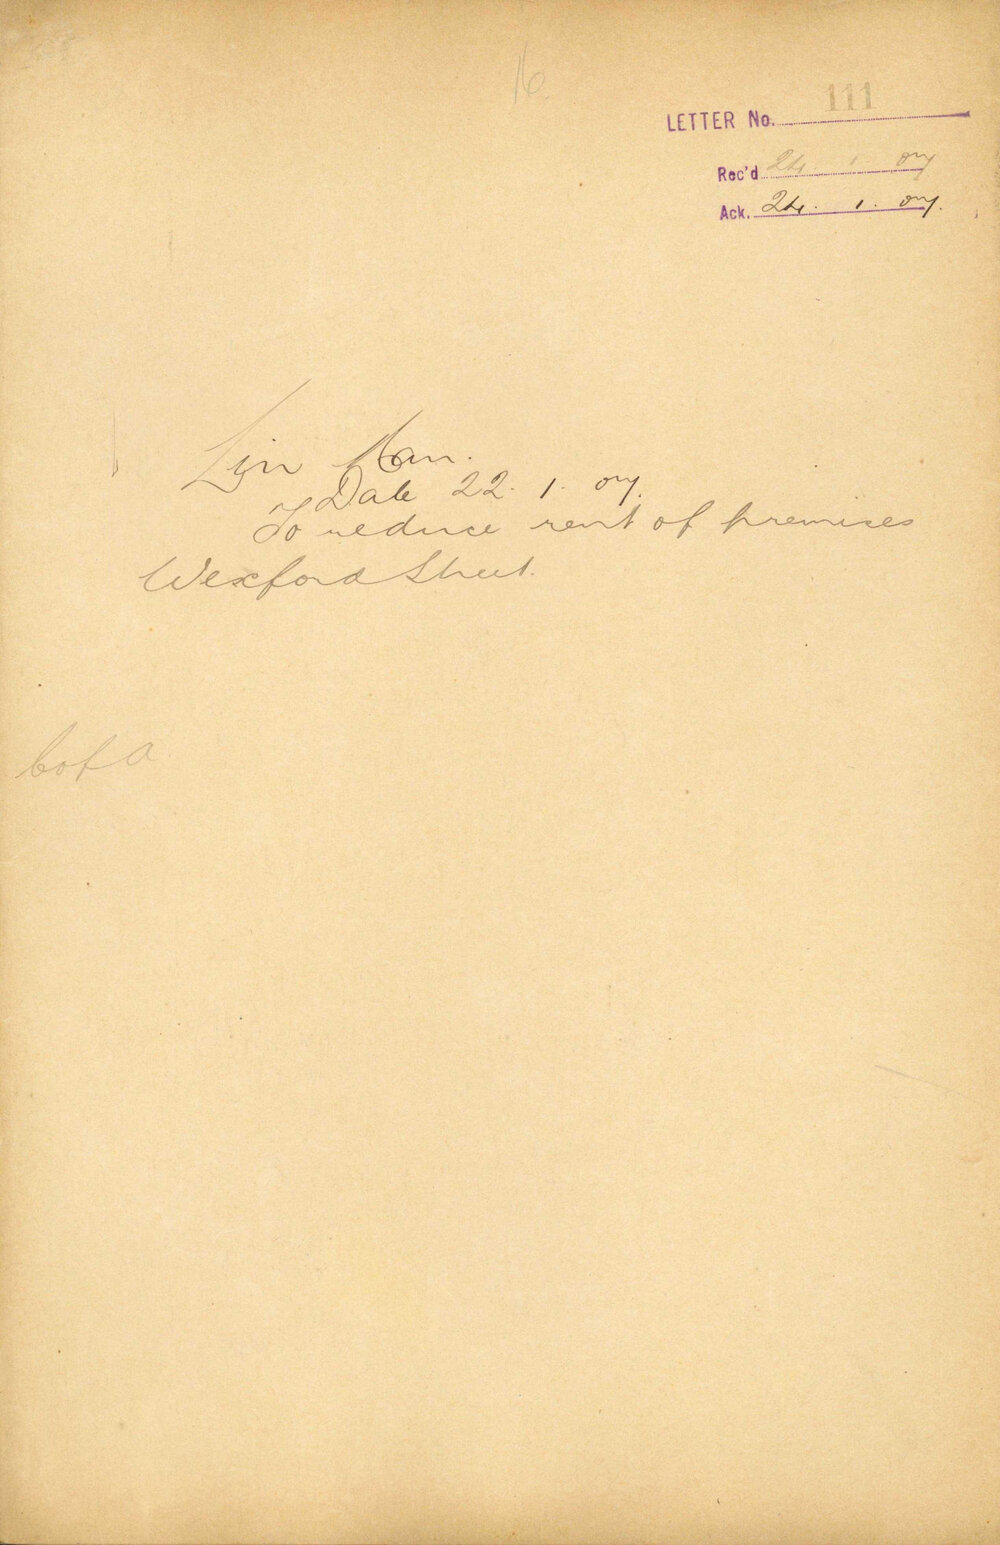 16
LETTER No. 111
Rec'd 24. 1. 07
Ack. 24. 1. 07.
Date 22. 1. 07.
To reduce rent of premises
Wexford Street.